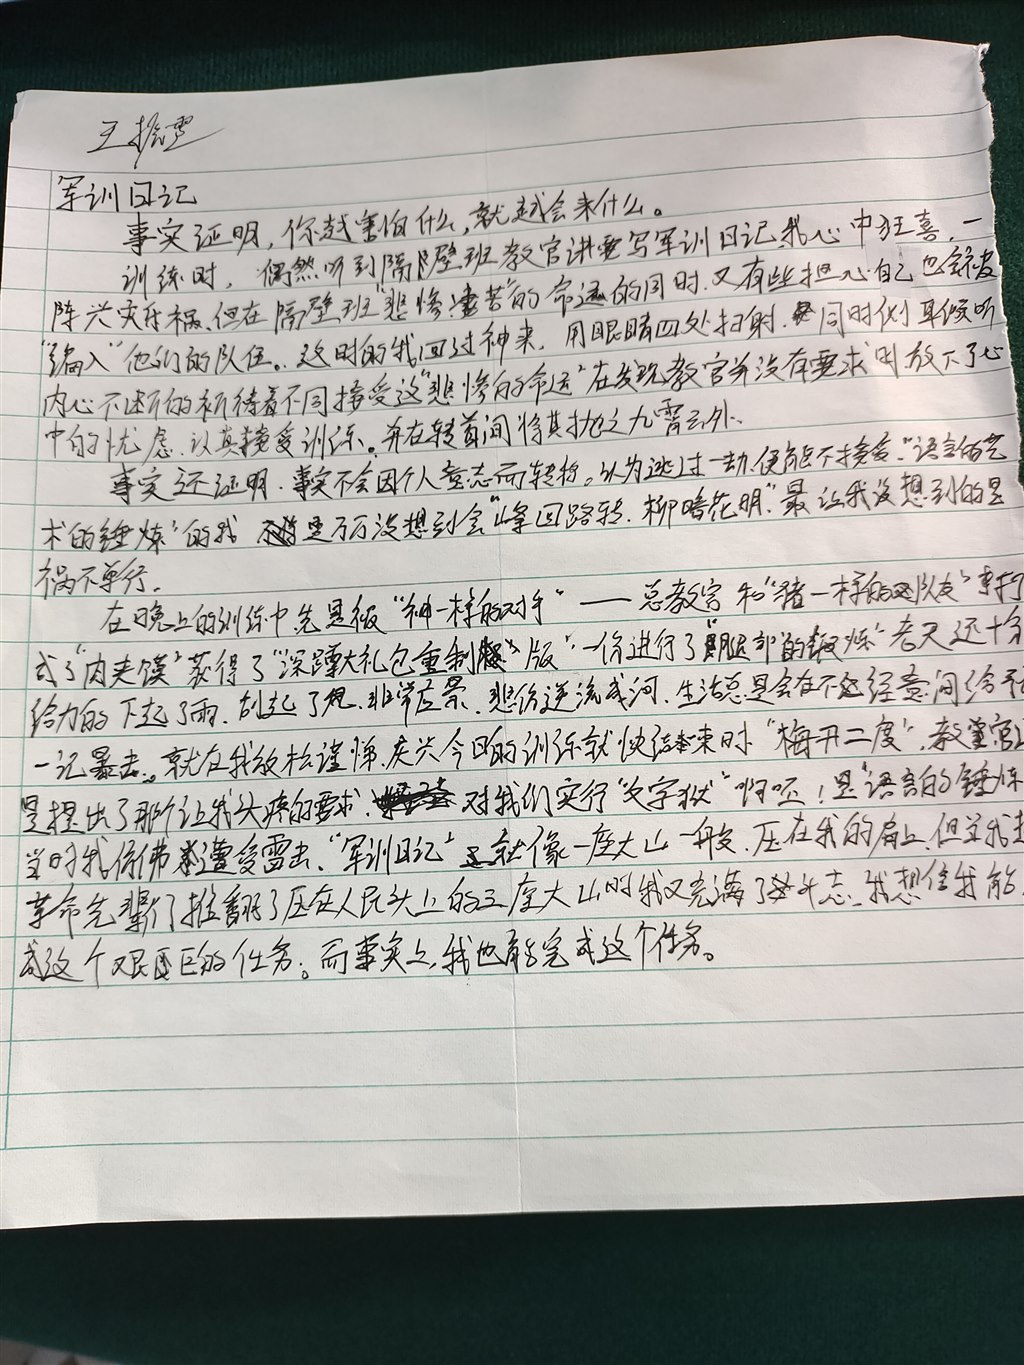 军训日记
事实证明,你越害怕什么,就越会来什么。
训练时,偶然听到隔壁班教官讲要写军训日记我心中狂喜,一
阵兴灾乐祸、但在隔壁班"悲惨凄苦"的命运的同时.又有些担心自己也会被
"编入"他们的队伍。这时的我回过神来,用眼睛四处扫射.同时侧耳倾听
内心不断的祈待着不同接受这"悲惨的命运"在发现教官并没有要求时放下了心
中的忧虑.认真接受训练。并在转首间将其抛之九霄云外.
事实还证明.事实不会因个人意志而转移。认为逃过一劫便能不接受"语言的艺
术的锤炼"的我 是万万没想到会"峰回路转.柳暗花明."最让我没想到的是
祸不单行.
在晚上的训练中先是被"神一样的对手"——总教官和"猪一样的队友"
式了"肉夹馍"获得了"深蹲大礼包重制版"一份进行了"腿部的锻炼"老天还十分
给力的下起了雨.刮起了风.非常应景.悲伤逆流成河.生活总是会在不经意间给
一记暴击。就在我放松谨惕.庆兴今日的训练就快结束时"梅开二度".教官
是提出了那个让我头疼的要求.对我们实行"文字狱"啊呸!是"语言的锤炼
当时我仿佛遭受雷击、"军训日记"就像一座大山一般.压在我的肩上.但当我
革命先辈们推翻了压在人民头上的三座大山时我又充满了斗志.我想信我能
成这个艰巨的任务。而事实上,我也能完成这个任务。